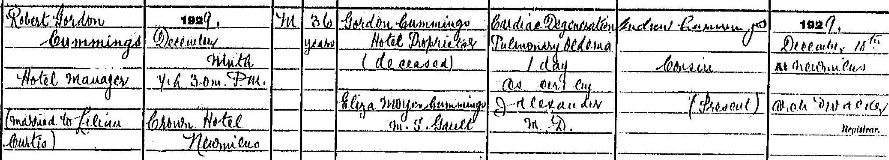 Robert Gordon
Cummings
Hotel Manager
(married to Lilian
Curtis)
1929.
December
Ninth
4h. 30m. P.M.
Crown Hotel
Newmilns
M
36
years
Gordon Cummings
Hotel Proprietor
(deceased)
Eliza Moyes Cummings
M. S. Gault
Cardiac Degeneration
Pulmonary Oedema
1 day
As cert by
J Alexander
M. D.
Andrew
Cousin
(Present)
1929.
December 10th
At Newmilns
Registrar.